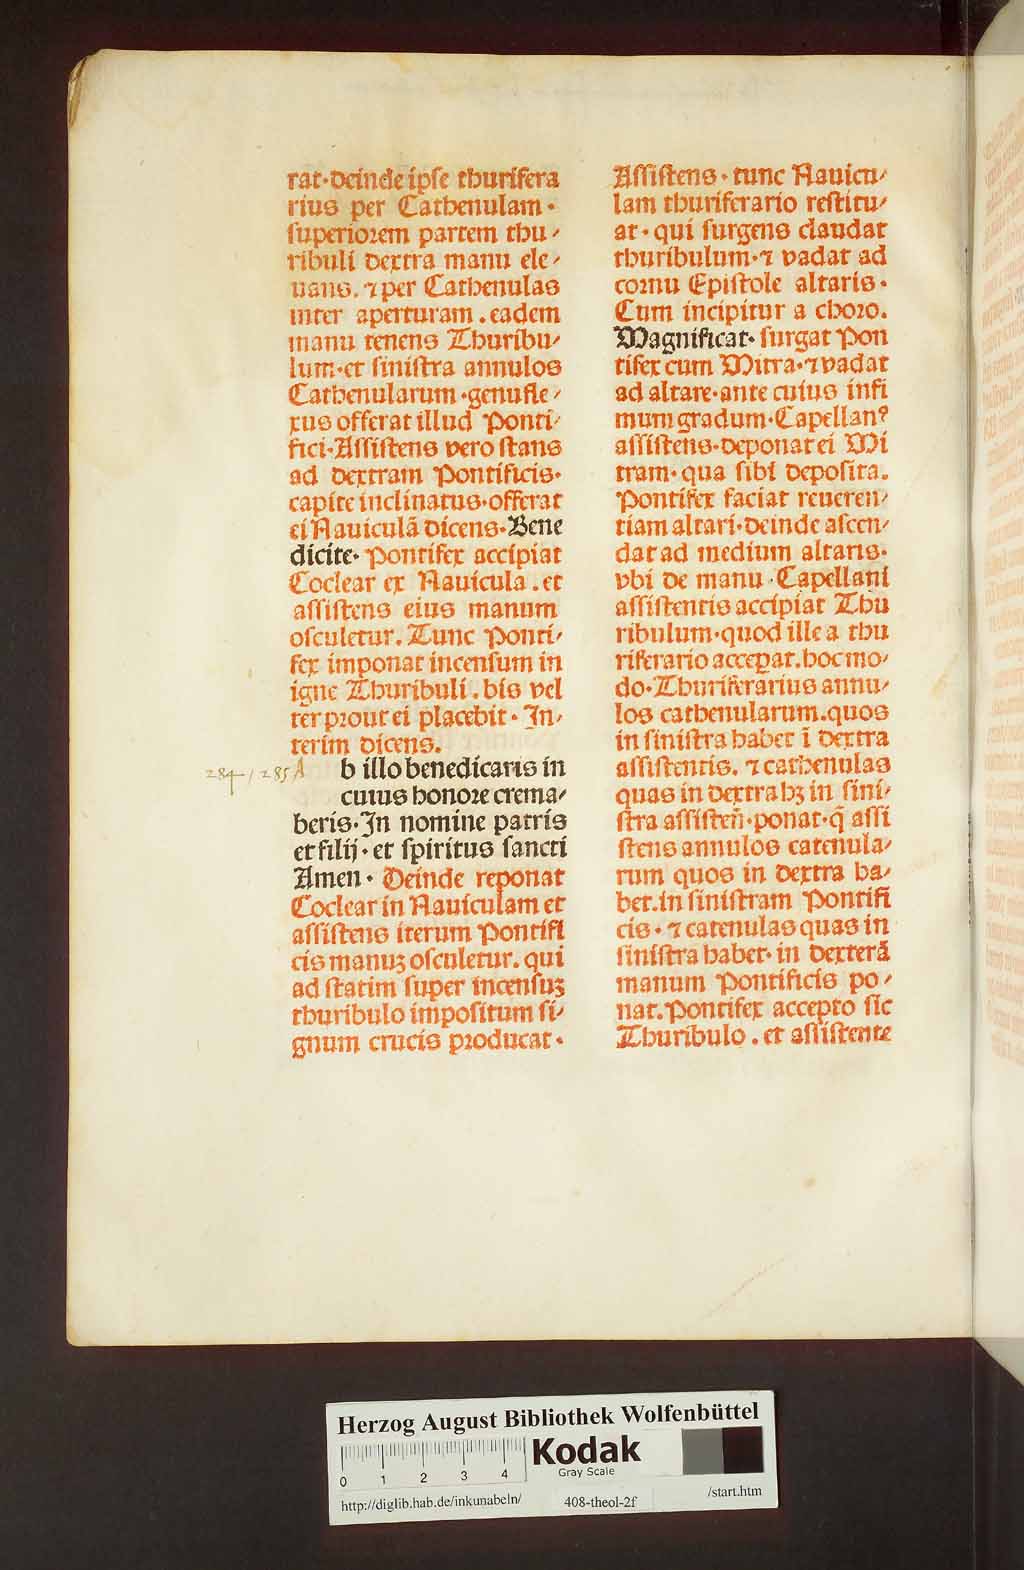 rat·deinde ipse thurifera
rius per Cathenulam·
superiorem partem thu⸗
ribuli dextra manu ele⸗
uans. ⁊ per Cathenulas
inter aperturam. eadem
manu tenens Thuribu⸗
lum·et sinistra annulos
Cathenularum·genufle⸗
xus offerat illud Ponti⸗
fici·Assistens vero stans
ad dextram Pontificis·
capite inclinatus·offerat
ei Nauiculã dicens·Bene
dicite· Pontifex accipiat
Coclear ex Nauicula. et
assistens eius manum
osculetur. Tunc Ponti⸗
fex imponat incensum in
igne Thuribuli. bis vel
ter prout ei placebit· In⸗
terim dicens.
284/285 A b illo benedicaris in
cuius honore crema⸗
beris·In nomine patris
et filij·et spiritus sancti
Amen· Deinde reponat
Coclear in Nauiculam et
assistens iterum Pontifi
cis manuꝫ osculetur. qui
ad statim super incensuꝫ
thuribulo impositum si⸗
gnum crucis producat·
Assistens·tunc Nauicu⸗
lam thuriferario restitu⸗
at·qui surgens claudat
thuribulum·⁊ vadat ad
cornu Epistole altaris·
Cum incipitur a choro.
Magnificat· surgat Pon
tifex cum Mitra·⁊ vadat
ad altare·ante cuius infi
mum gradum·Capellanꝰ
assistens·deponat ei Mi
tram·qua sibi deposita.
Pontifex faciat reueren⸗
tiam altari·deinde ascen⸗
dat ad medium altaris·
vbi de manu·Capellani
assistentis accipiat Thu
ribulum·quod ille a thu
riferario accepat. hoc mo⸗
do·Thuriferarius annu⸗
los cathenularum. quos
in sinistra habet ĩ dextra
assistentis. ⁊ cathenulas
quas in dextra hꝫ in sini⸗
stra assisteñ·ponat·q̃ assi
stens annulos catenula⸗
rum quos in dextra ha⸗
bet. in sinistram Pontifi
cis·⁊ catenulas quas in
sinistra habet·in dexterã
manum Pontificis po⸗
nat. Pontifex accepto sic
Thuribulo. et assistente
Herzog August Bibliothek Wolfenbüttel
0 1 2 3 4
Kodak
Gray Scale
http://diglib.hab.de/inkunabeln/ 408-theol-2f /start.htm